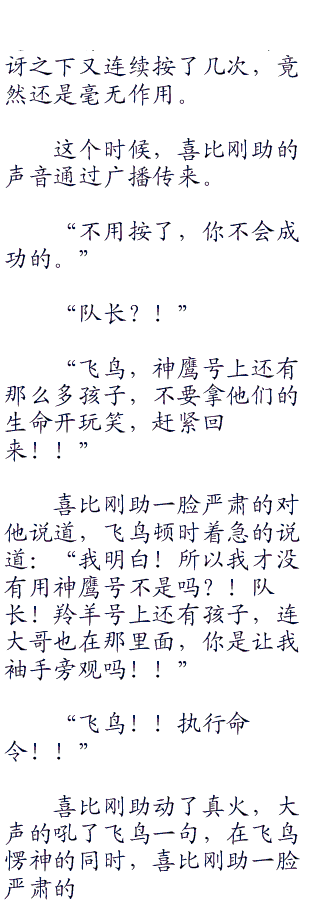 讶之下又连续按了几次，竟
然还是毫无作用。
这个时候，喜比刚助的
声音通过广播传来。
“不用按了，你不会成
功的。”
“队长？！”
“飞鸟，神鹰号上还有
那么多孩子，不要拿他们的
生命开玩笑，赶紧回
来！！”
喜比刚助一脸严肃的对
他说道，飞鸟顿时着急的说
道：“我明白！所以我才没
有用神鹰号不是吗？！队
长！羚羊号上还有孩子，连
大哥也在那里面，你是让我
袖手旁观吗！！”
“飞鸟！！执行命
令！！”
喜比刚助动了真火，大
声的吼了飞鸟一句，在飞鸟
愣神的同时，喜比刚助一脸
严肃的